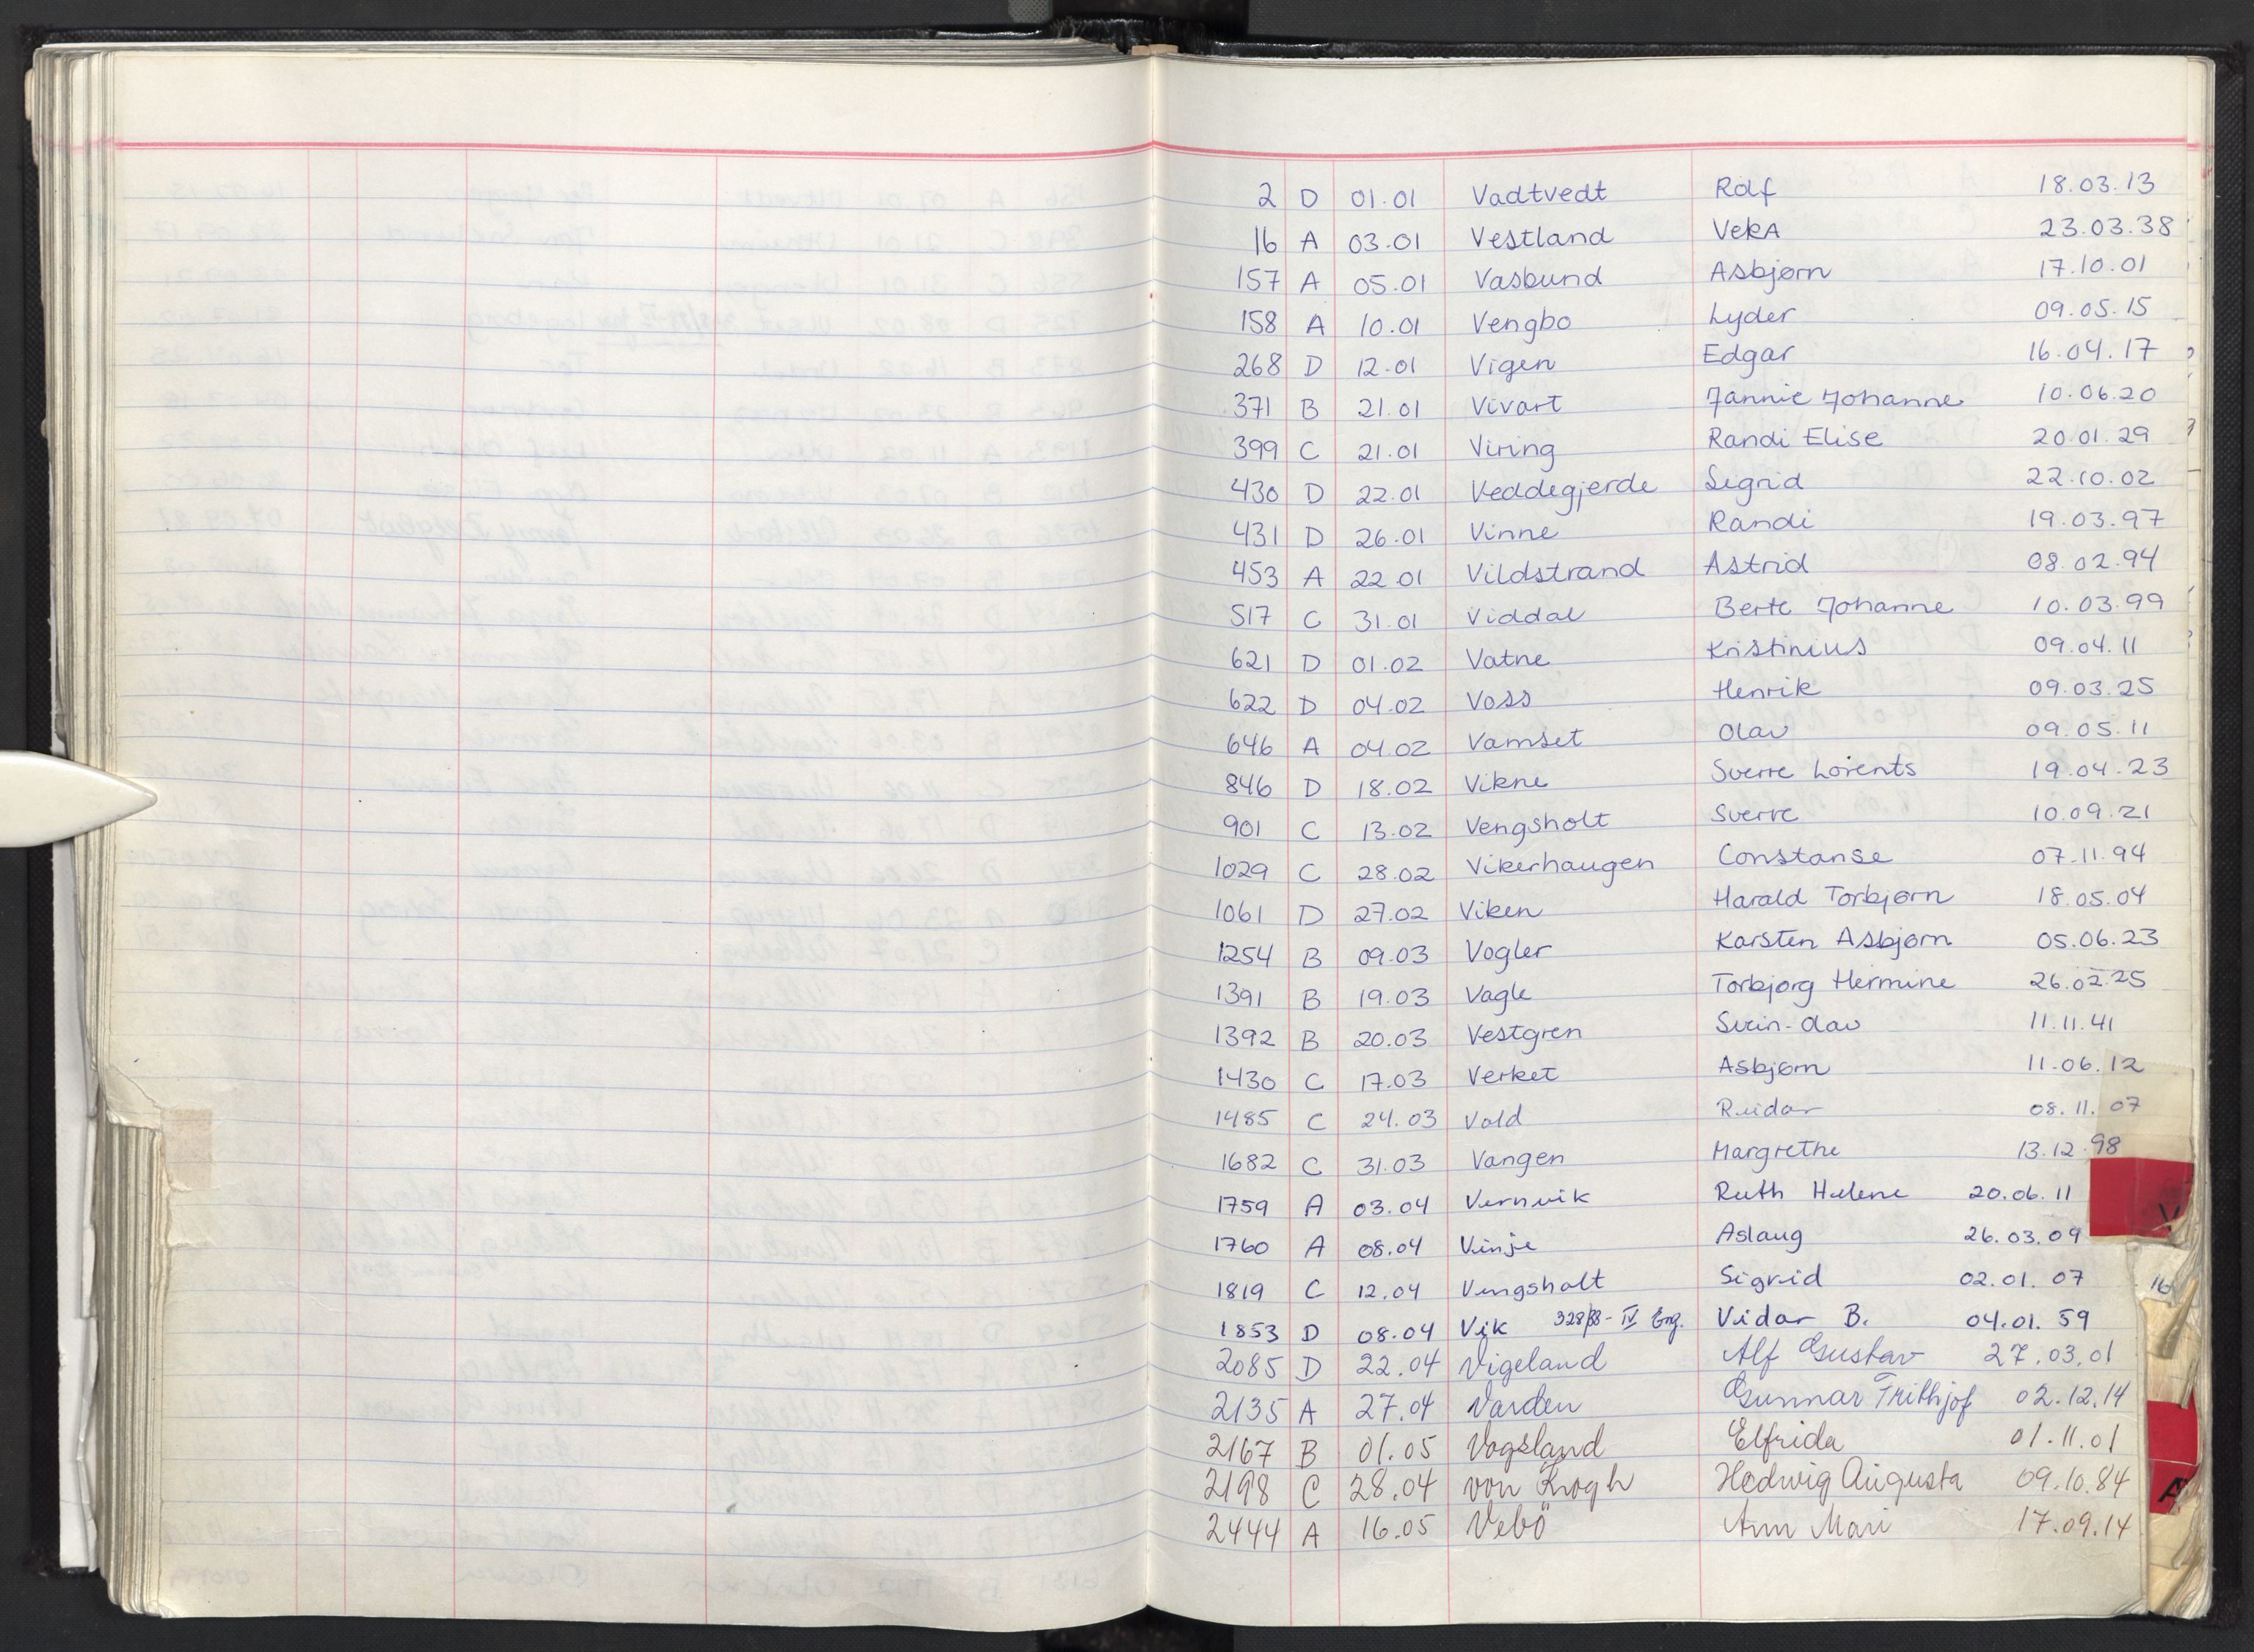 2 D 01.01 Vadtvedt Rolf 18.03.13
16 A 03.01 Vestland Vera 23.03.38
157 A 05.01 Vasbund Asbjørn 17.10.01
158 A 10.01 Vengbo Lyder 09.05.15
268 D 12.01 Vigen Edgar 16.04.17
371 B 21.01 Vivart Jannie Johanne 10.06.20
399 C 21.01 Viring Randi Elise 20.01.29
430 D 22.01 Veddegjerde Sigrid 22.10.02
431 D 26.01 Vinne Randi 19.03.97
453 A 22.01 Vildstrand Astrid 08.02.94
517 C 31.01 Viddal Berte Johanne 10.03.99
621 D 01.02 Vatne Kristinius 09.04.11
622 D 04.02 Voss Henrik 09.03.25
646 A 04.02 Vamset Olav 09.05.11
846 D 18.02 Vikne Sverre Lorents 19.04.23
901 C 13.02 Vengsholt Sverre 10.09.21
1029 C 28.02 Vikerhaugen Constanse 07.11.94
1061 D 27.02 Viken Harald Torbjørn 18.05.04
1254 B 09.03 Vogler Karsten Asbjørn 05.06.23
1391 B 19.03 Vagle Torbjorg Hermine 26.02.25
1392 B 20.03 Vestgren Svein-Olav 11.11.41
1430 C 17.03 Verket Asbjørn 11.06.12
1485 C 24.03 Vold Reidar 08.11.07
1682 C 31.03 Vangen Margrethe 13.12.98
1759 A 03.04 Vernvik Ruth Helene 20.06.11
V
1760 A 08.04 Vinje Aslaug 26.03.09
1819 C 12.04 Vengsholt Sigrid 02.01.07
16
1853 D 08.04 Vik 328/88 - IV Eng. Vidar B. 04.01.59
2085 D 22.04 Vigeland Alf Gustav 27.03.01
2135 A 27.04 Varden Gunnar Frithjof 02.12.14
2167 B 01.05 Vogsland Elfrida 01.11.01
2198 C 28.04 von Krogh Hedwig Augusta 09.10.84
A
2444 A 16.05 Vebö Ann Mari 17.09.14